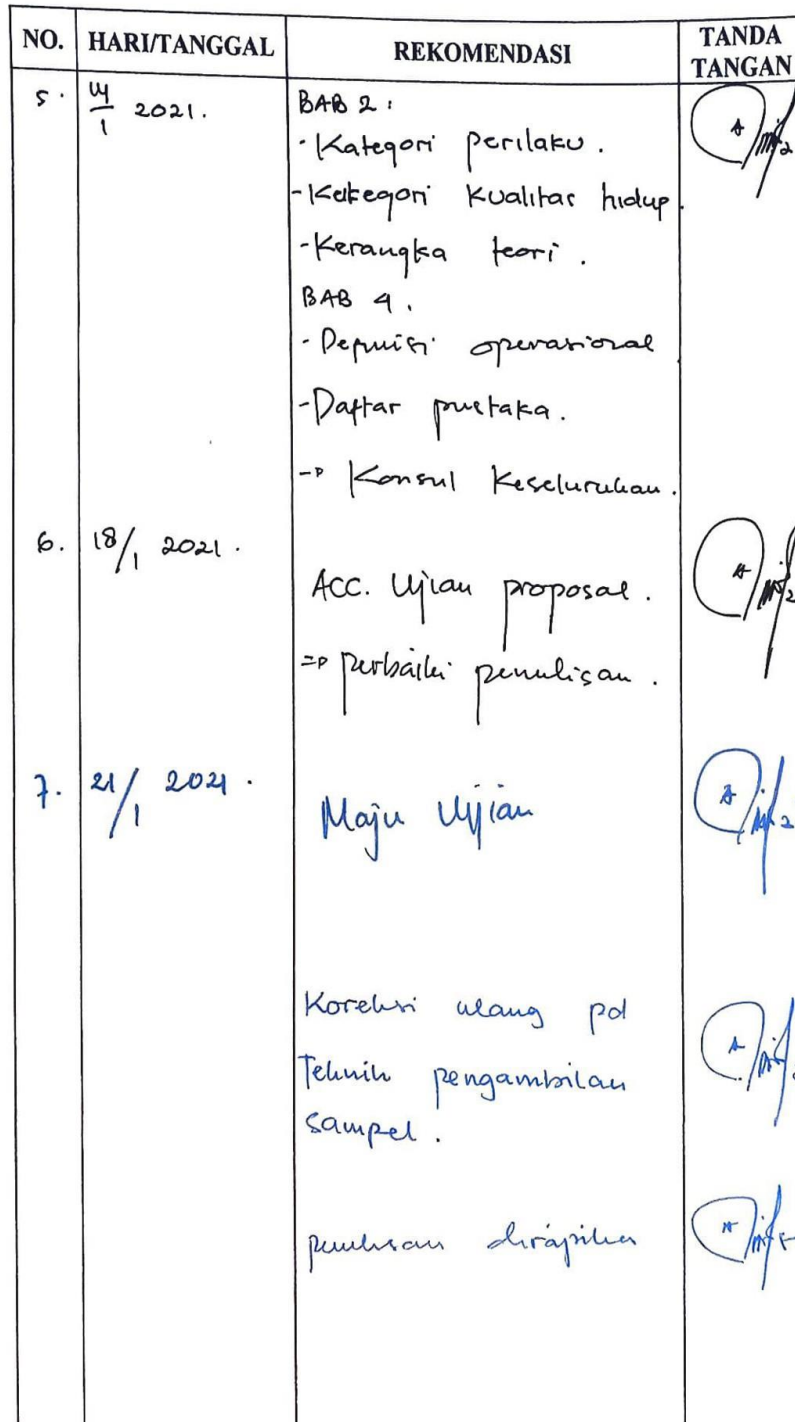 NO. HARI/TANGGAL REKOMENDASI TANDA TANGAN
5. 14/1 2021. BAB 2:
- Kategori perilaku.
- Kategori Kualitas hidup.
- Kerangka teori.
BAB 4.
- Depinisi operasional
- Daftar pustaka.
-> Konsul Keseluruhan.
6. 18/1 2021.
ACC. Ujian proposal.
=> perbaiki penulisan.
7. 21/1 2021.
Maju Ujian
Koreksi ulang pd
Teknik pengambilan
sampel.
penulisan dirapikan